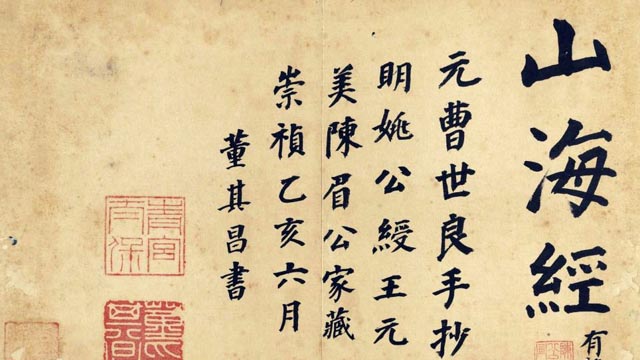 山海經
有
元曹世良手抄
明姚公綬王元
美陳眉公家藏
崇禎乙亥六月
董其昌書
青宮太保